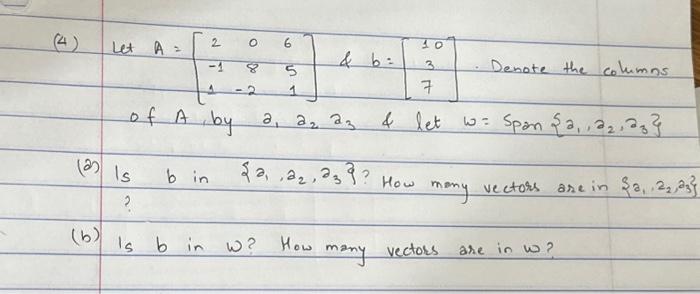 (4) Let A = [ 2 0 6 ] & b = [ 10 ] . Denote the columns
-1 8 5 3
1 -2 1 7
of A, by a₁ a₂ a₃ & let w = Span {a₁, a₂, a₃}
(a) Is b in {a₁, a₂, a₃}? How many vectors are in {a₁, a₂, a₃}
?
(b) Is b in w? How many vectors are in w?